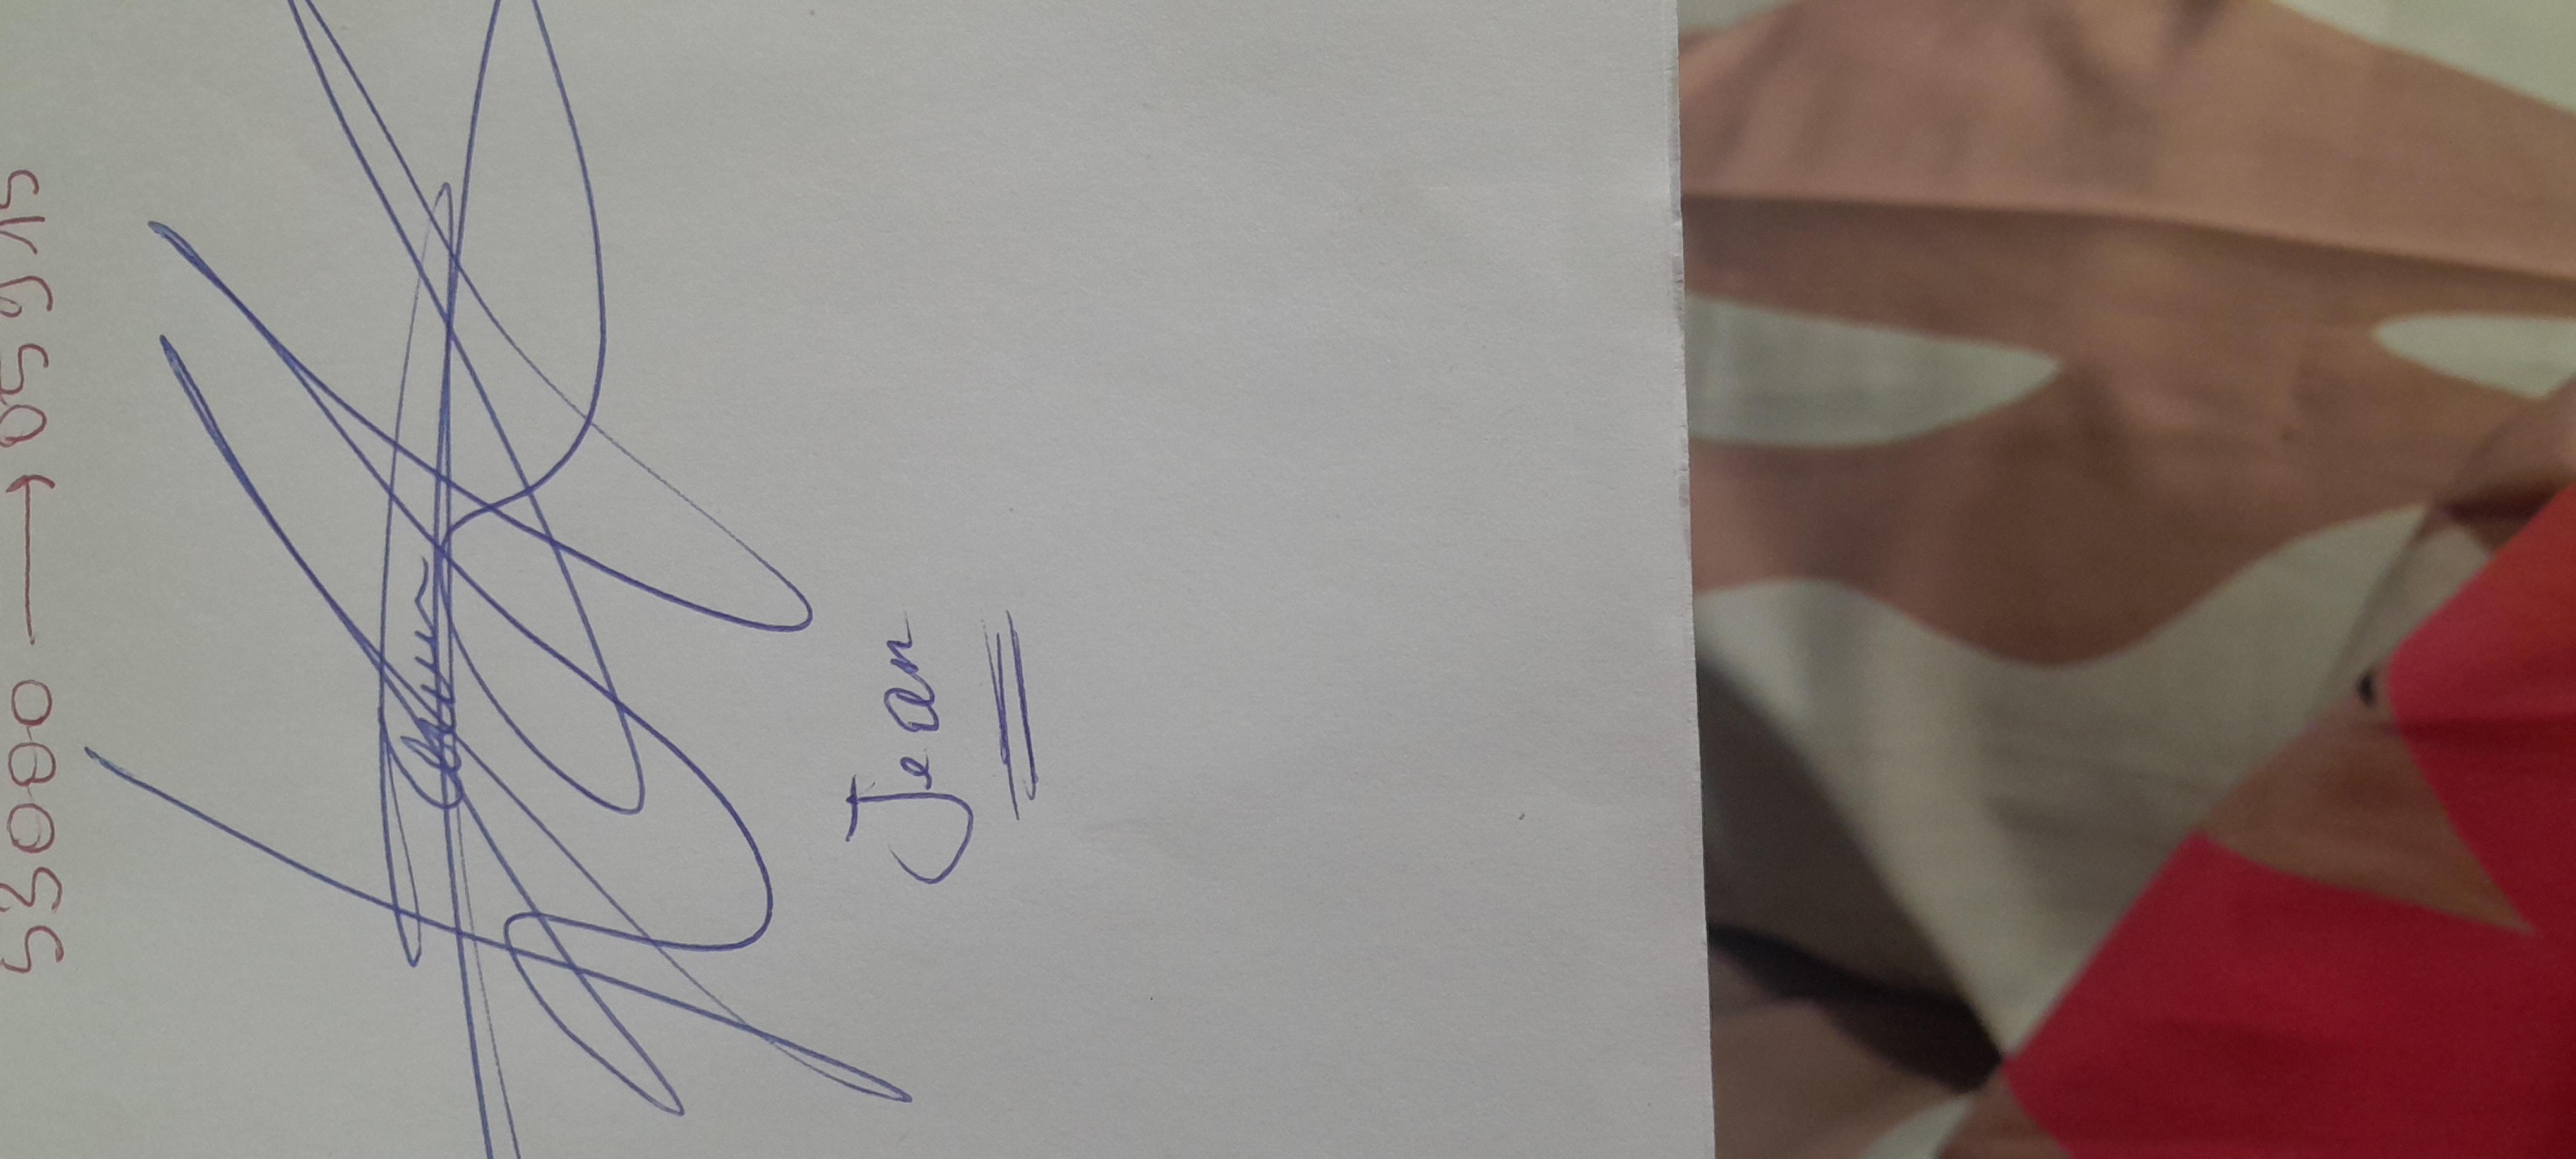 53000 → 05915
Jean